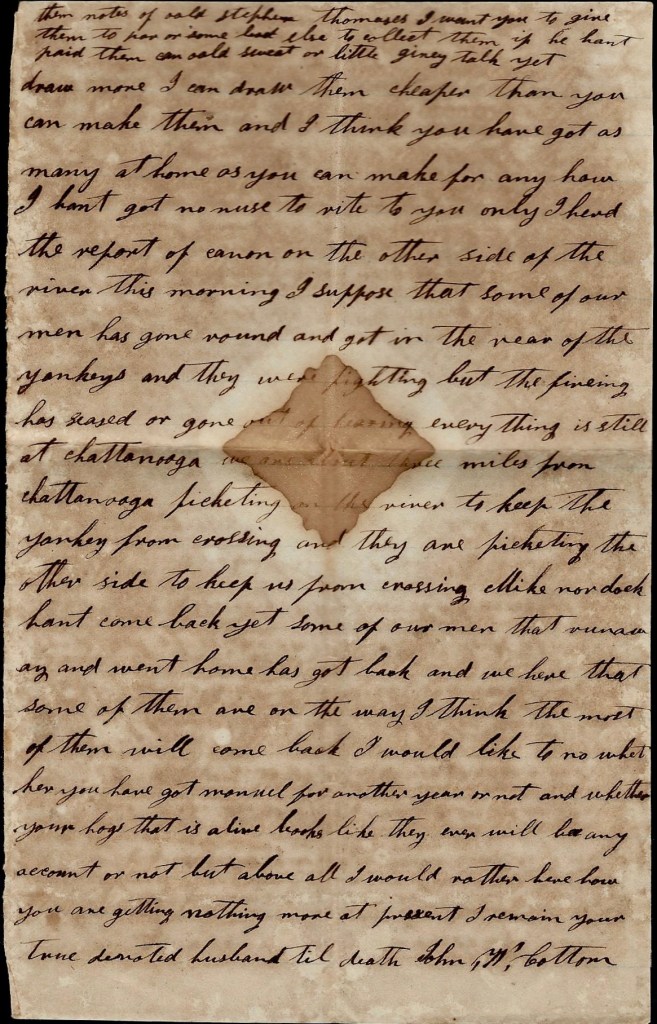 them notes of oald stephen thomases I want you to give
them to par or some bod else to collect them if he hant
paid them can oald sweat or little giney talk yet
draw more I can draw them cheaper than you
can make them and I think you have got as
many at home as you can make for any how
I hant got no nuse to rite to you only I herd
the report of canon on the other side of the
river this morning I suppose that some of our
men has gone round and got in the rear of the
yankeys and they were fighting but the fireing
has seased or gone out of hearing everything is still
at chattanooga we are about three miles from
chattanooga picketing on the river to keep the
yankey from crossing and they are picketing the
other side to keep us from crossing Mike nor dock
hant come back yet some of our men that runaw
ay and went home has got back and we here that
some of them are on the way I think the most
of them will come back I would like to no whet
her you have got manuel for another year or not and whether
your hogs that is alive looks like they ever will be any
account or not but above all I would rather here how
you are getting nothing more at present I remain your
true devoted husband til death John W. Cottom